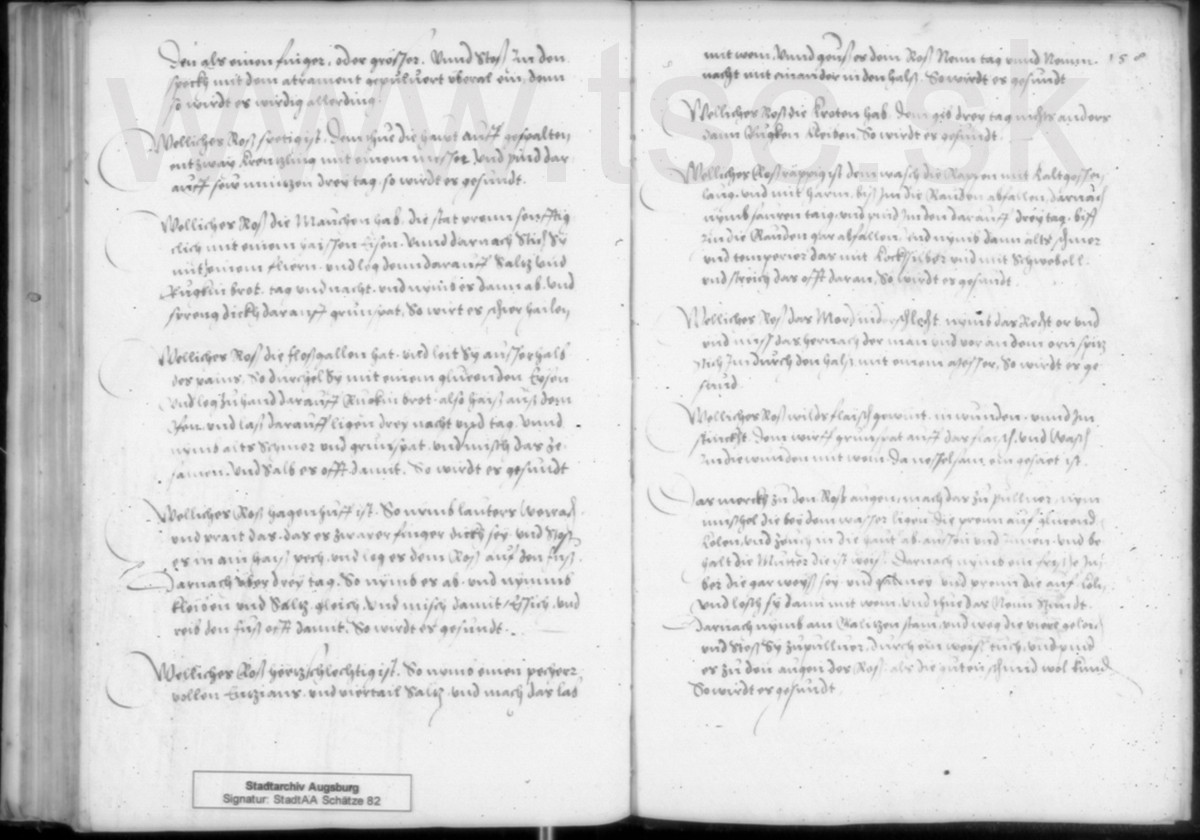 den als einen finger, oder grösser. Vnnd stoß in den
speckh mit dem atrament gepuluert vberal ein, dann
so wirdt es wirdig allerding
Wellicher Roß fretig ist. Dem thue die haut auff gespalten
entzway Kreutzling mit einem messer, vnd pind dar
auff drey tag, so wirdt es gesundt.
Wellicher Roß die Mauchen hab, die stat prenn senfftig
clich mit einem haissen Eysen. Vnnd darnach stich Sy
mit ainem fliern. vnd leg denn darauff Saltz vnd
Rugkin brot. tag vnd nacht. vnd nymb es dann ab. vnd
spreng dickh darauff grunspat, So wirt es schier hailen
Wellicher Roß die floßgallen hat. vnd leit Sy ausserhalb
des pains. So durchel Sy mit einem gluenden Eysen
vnd leg zu hand darauff Ruckin brot. also haiß auß dem
ofen. vnd laß darauff ligen drey nacht vnd tag. vnnd
nymb alts Schmer vnd grunspat. vnd misch das ze
samen. vnd Salb es offt damit. So wirdt es gesundt
Wellicher Roß hagenhufft ist. So nymb lautern Weirach
vnd prait das. das es zwaier finger dickh sey. vnd stoß
es in ain haiß pech. vnd leg es dem Roß auf den fuß.
Darnach vber drey tag. So nymb es ab. vnd nymmb
kleiben vnd Saltz gleich. vnd misch damit Essich. vnd
reib den fuß offt damit. So wirdt es gesundt.
Wellicher Roß hertzschlechtig ist. So nymb einen pecher
vollen Entzians. vnd viertail Saltz. vnd mach das las
mit wein. Vnnd geuß es dem Roß Neun tag vnnd Neun
nacht mit einander in den halß. So wirdt es gesundt
158
Wellicher Roß die kroten hab. dem gib drey tag nichts anders
dann Rugken kleiben. So wirdt es gesundt.
Wellicher Roß rappig ist dem wasch die Rappen mit kaltgosser
laug. vnd mit harm. biß Im die Rauden abfallen, darnach
nymb sauren taig. vnd pind Im den darauff drey tag. biß
Im die Rauden gar abfallen. vnd nymb dann alts schmer
vnd temperier das mit kecksilber vnd mit Schwebell
vnd streich das offt daran, So wirdt es gesundt.
Wellicher Roß das Mord nider schlecht. nymb das Recht or vnd
vnd miss das hernach der man vnd vor an dem orn spitz
stich Im durch den halß mit einem messer, So wirdt es ge
sund.
Wellicher Roß wilds flaisch gewint. in wunden. vnnd Im
stinckht. dem wirff grunspat auff das flaisch. vnd Wasch
Im die wunden mit wein. da nesselsam ein gesaet ist.
Das merckh zu den Roß augen. mach das zu puluer. nym
muschel die bei dem wasser ligen. die prenn auf gluend
kolen, vnd zeuch in die haut ab aussen vnd Innen. vnd be
halt die Muter die ist weiß. Darnach nymb ein
ber die gar weyß sey. vnd vnd prenn die auf koln.
vnd lesch sy dann mit wein. vnd thue das Neun Stundt.
Darnach nymb ain stain, vnd weg die
vnd stoß Sy zu puluer. durch ein weiß tuch. vnd pind
es zu den augen der Roß. als die guten schmid wol kund.
So wirdt es gesundt.
www.tsc.sk
Stadtarchiv Augsburg
Signatur: StadtAA Schätze 82